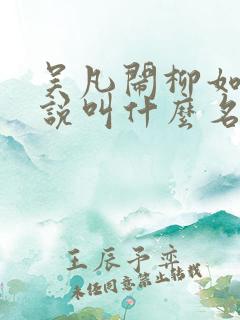 吴凡闹柳如
說叫什麼名
王辰予奕
未经同意禁止转载